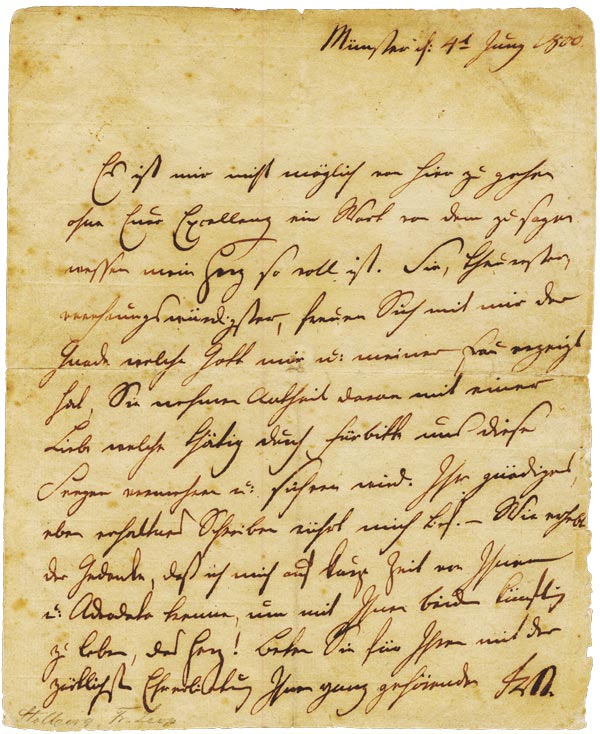 Münster d: 4t Juny 1800
Es ist mir nicht möglich von hier zu gehen
ohne Euer Excellenz ein Wort von dem zu sagen
wessen mein Herz so voll ist. Sie, theurester,
verehrungswürdigster, freuen Sich mit mir der
Gnade welche Gott mir u: meiner Frau erzeigt
hat, Sie nehmen Antheil daran mit einer
Liebe welche thätig durch Fürbitte uns diese
Seegen vermehren u: sichern wird. Ihr gnädiges,
eben erhaltnes Schreiben rührt mich tief. – Wie erhebt
der Gedanke, daß ich mich auf kurze Zeit von Ihnen
u: trenne, um mit Ihnen beiden künftig
zu leben, das Herz! Beten Sie für Ihren mit der
zärtlichsten Ehrerbietung Ihnen ganz gehörenden
Stolberg, Fr. Leop